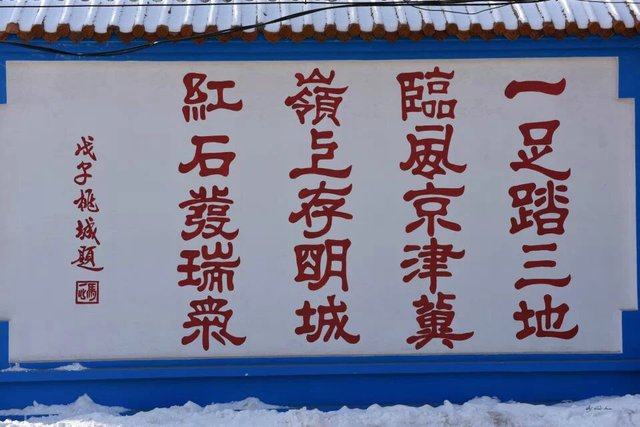 一足踏三地
臨風京津冀
嶺上存明城
紅石發瑞氣
戊子姚城題